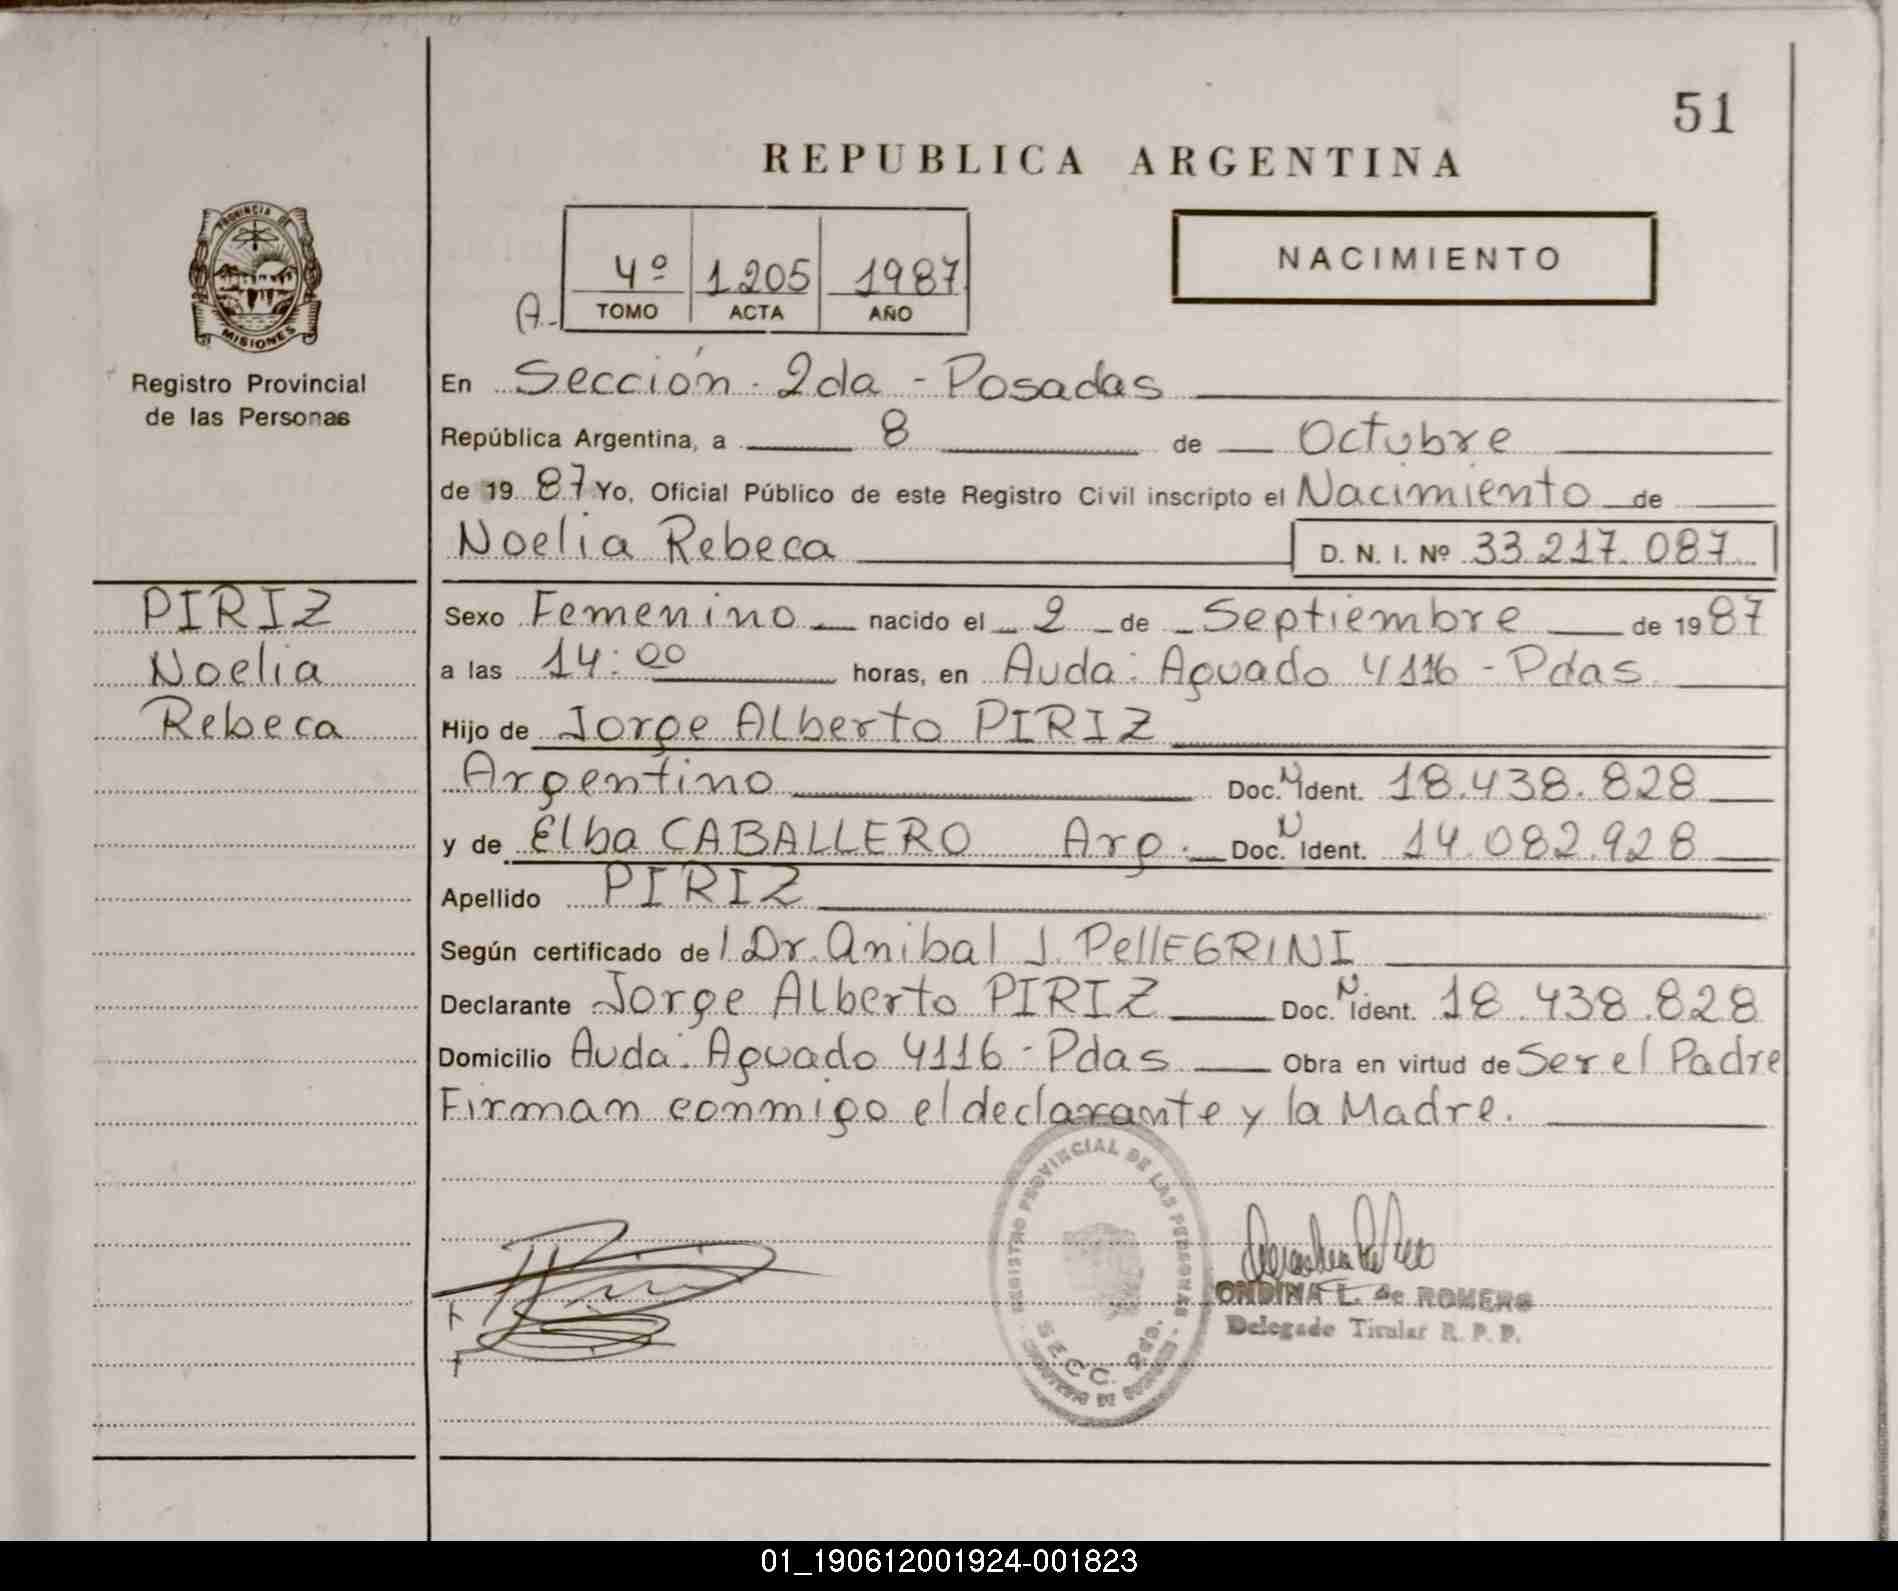 51
REPUBLICA ARGENTINA
PROVINCIA DE
MISIONES
Registro Provincial
de las Personas
NACIMIENTO
A.- 4º 1205 1987
TOMO ACTA AÑO
En Sección 2da - Posadas
República Argentina, a 8 de Octubre
de 1987 Yo, Oficial Público de este Registro Civil inscripto el Nacimiento de
Noelia Rebeca D. N. I. Nº 33.217.087
PIRIZ
Noelia
Rebeca
Sexo Femenino nacido el 2 de Septiembre de 1987
a las 14:00 horas, en Avda: Aguado 4116 - Pdas
Hijo de Jorge Alberto PIRIZ
Argentino Doc. N Ident. 18.438.828
y de Elba CABALLERO Arg. Doc. N Ident. 14.082.928
Apellido PIRIZ
Según certificado de l Dr. Anibal J. PellEGRINI
Declarante Jorge Alberto PIRIZ Doc. N Ident. 18.438.828
Domicilio Avda: Aguado 4116 - Pdas Obra en virtud de Ser el Padre
Firman conmigo el declarante y la Madre.
REGISTRO PROVINCIAL DE LAS PERSONAS
SECC. 2da.
ONDINA L. de ROMERO
Delegado Titular R. P. P.
01_190612001924-001823